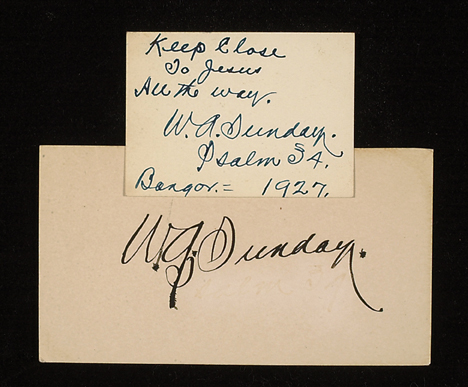 Keep Close
To Jesus
All the way.
W. A. Sunday.
Psalm 34.
Bangor. = 1927.
W. A. Sunday.